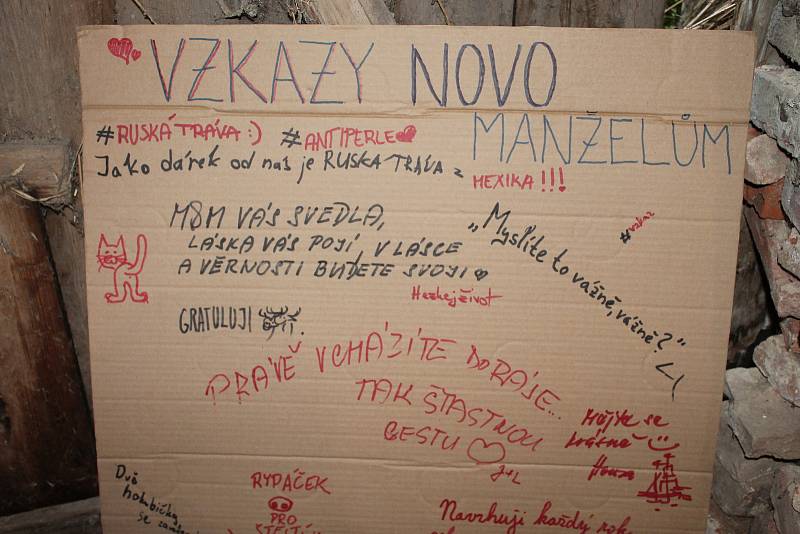 VZKAZY NOVO
MANŽELŮM
#RUSKÁ TRÁVA :) #ANTIPERLE
Jako dárek od nás je RUSKÁ TRÁVA z
MEXIKA!!!
M&M VÁS SVEDLA,
LÁSKA VÁS POJÍ, V LÁSCE
A VĚRNOSTI BUDETE SVOJI
#vzkaz
„Myslíte to vážně, vážně?"
Hezkej život
GRATULUJI
PRÁVĚ VCHÁZÍTE DO RÁJE...
TAK ŠŤASTNOU
CESTU
J+L
Mějte se
krásně
Honza
Dvě
holubičky
se
RYPÁČEK
PRO
ŠTĚSTÍ
Navrhuji každý rok